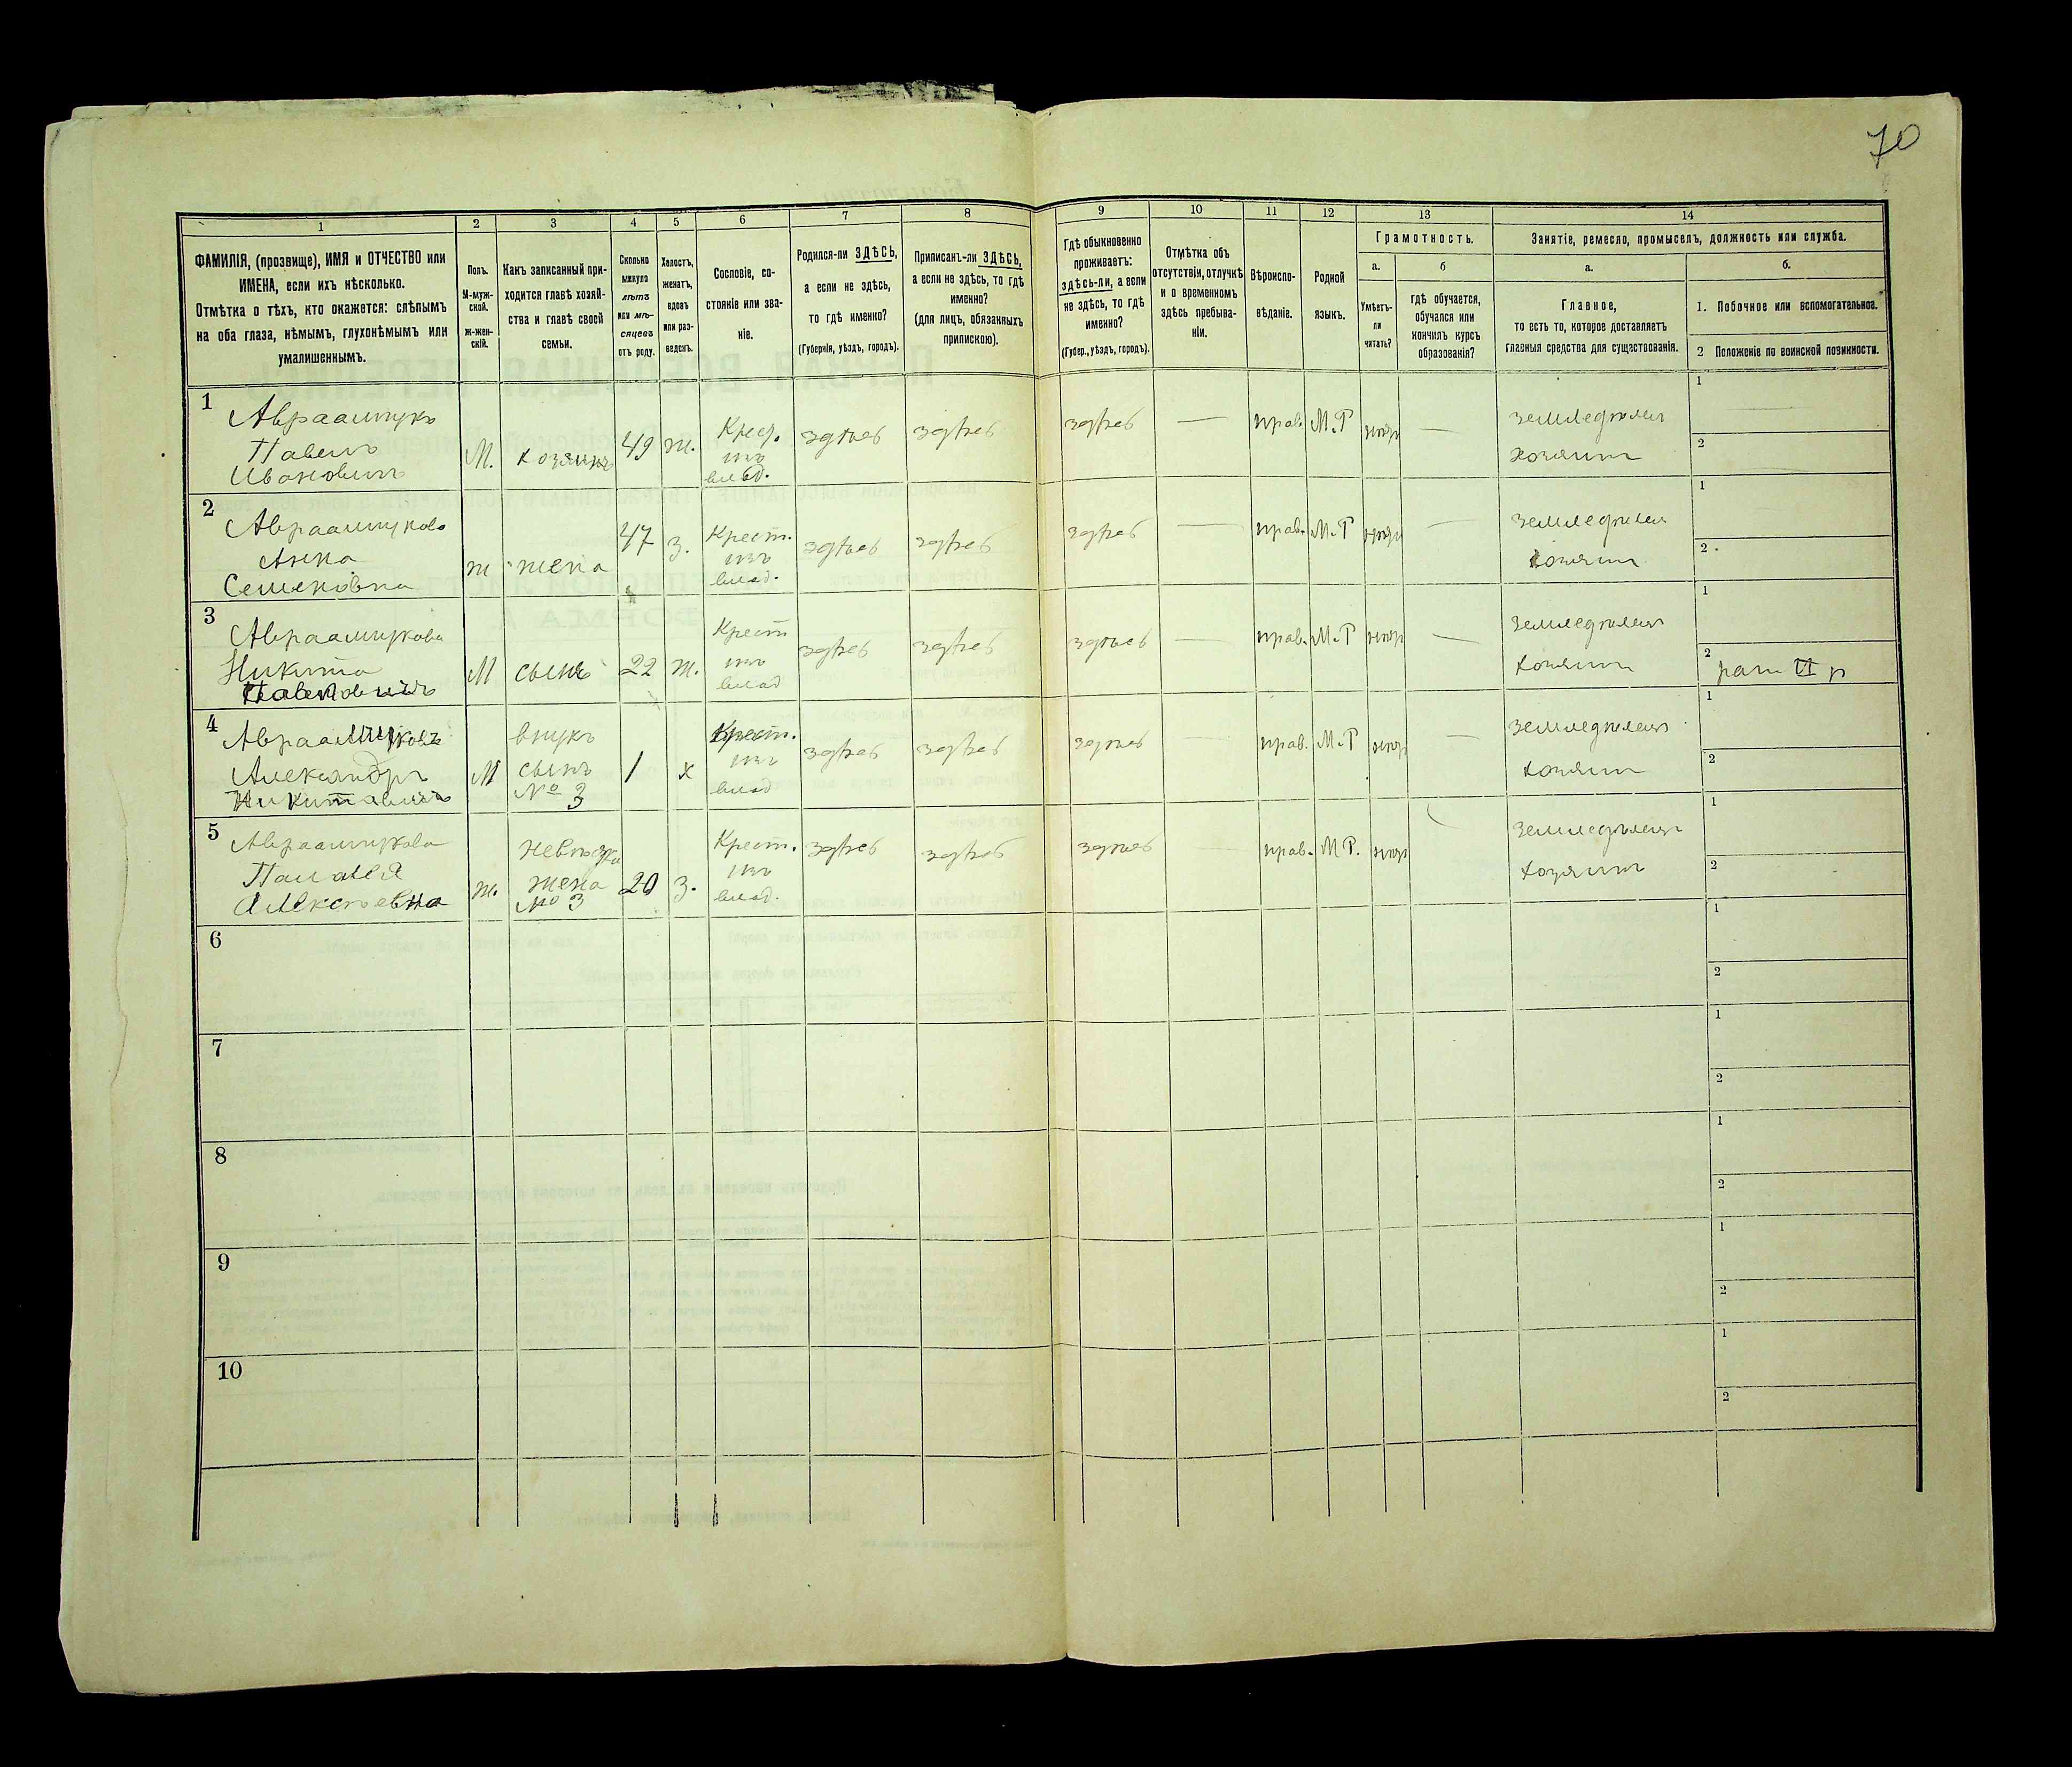 70
1 2 3 4 5 6 7 8 9 10 11 12 13 14
ФАМИЛІЯ, (прозвище), ИМЯ и ОТЧЕСТВО или
ИМЕНА, если ихъ нѣсколько.
Отмѣтка о тѣхъ, кто окажется: слѣпымъ
на оба глаза, нѣмымъ, глухонѣмымъ или
умалишеннымъ.
Полъ.
М-муж-
ской.
ж-жен-
скій.
Какъ записанный при-
ходится главѣ хозяй-
ства и главѣ своей
семьи.
Сколько
минуло
лѣтъ
или мѣ-
сяцевъ
отъ роду.
Холостъ,
женатъ,
вдовъ
или раз-
веденъ.
Сословіе, со-
стояніе или зва-
ніе.
Родился-ли ЗДѢСЬ,
а если не здѣсь,
то гдѣ именно?
(Губернія, уѣздъ, городъ).
Приписанъ-ли ЗДѢСЬ,
а если не здѣсь, то гдѣ
именно?
(для лицъ, обязанныхъ
припискою).
Гдѣ обыкновенно
проживаетъ:
здѣсь-ли, а если
не здѣсь, то гдѣ
именно?
(Губер., уѣздъ, городъ).
Отмѣтка объ
отсутствіи, отлучкѣ
и о временномъ
здѣсь пребыва-
ніи.
Вѣроиспо-
вѣданіе.
Родной
языкъ.
Грамотность.
а.
Умѣетъ-
ли
читать?
б
гдѣ обучается,
обучался или
кончилъ курсъ
образованія?
Занятіе, ремесло, промыселъ, должность или служба.
а.
Главное,
то есть то, которое доставляетъ
главныя средства для существованія.
б.
1. Побочное или вспомогательное.
2 Положеніе по воинской повинности.
1
Авраамчукъ
Павелъ
Ивановичъ
М.
хозяинъ
49
ж.
Крест.
изъ
влад.
здѣсь
здѣсь
здѣсь
—
прав.
М.Р
—
земледѣлецъ
хозяинъ
1
2
2
Авраамчукова
Анна
Семеновна
ж
жена
47
з.
Крест.
изъ
влад.
здѣсь
здѣсь
здѣсь
—
прав.
М.Р
—
земледѣлецъ
хозяинъ
1
2
3
Авраамчукова
Никита
Павловичъ
М
сынъ
22
ж.
Крест
изъ
влад
здѣсь
здѣсь
здѣсь
—
прав.
М.Р
—
земледѣлецъ
хозяинъ
1
2
рат II р
4
Авраамчуковъ
Александръ
Никитавичъ
М
внукъ
сынъ
№ 3
1
х
Крест.
изъ
влад
здѣсь
здѣсь
здѣсь
—
прав.
М.Р
—
земледѣлецъ
хозяинъ
1
2
5
Авраамчукова
Алексѣевна
ж.
невѣстка
жена
№ 3
20
з.
Крест.
изъ
влад.
здѣсь
здѣсь
здѣсь
—
прав.
М Р.
земледѣлецъ
хозяинъ
1
2
6
1
2
7
1
2
8
1
2
9
1
2
10
1
2